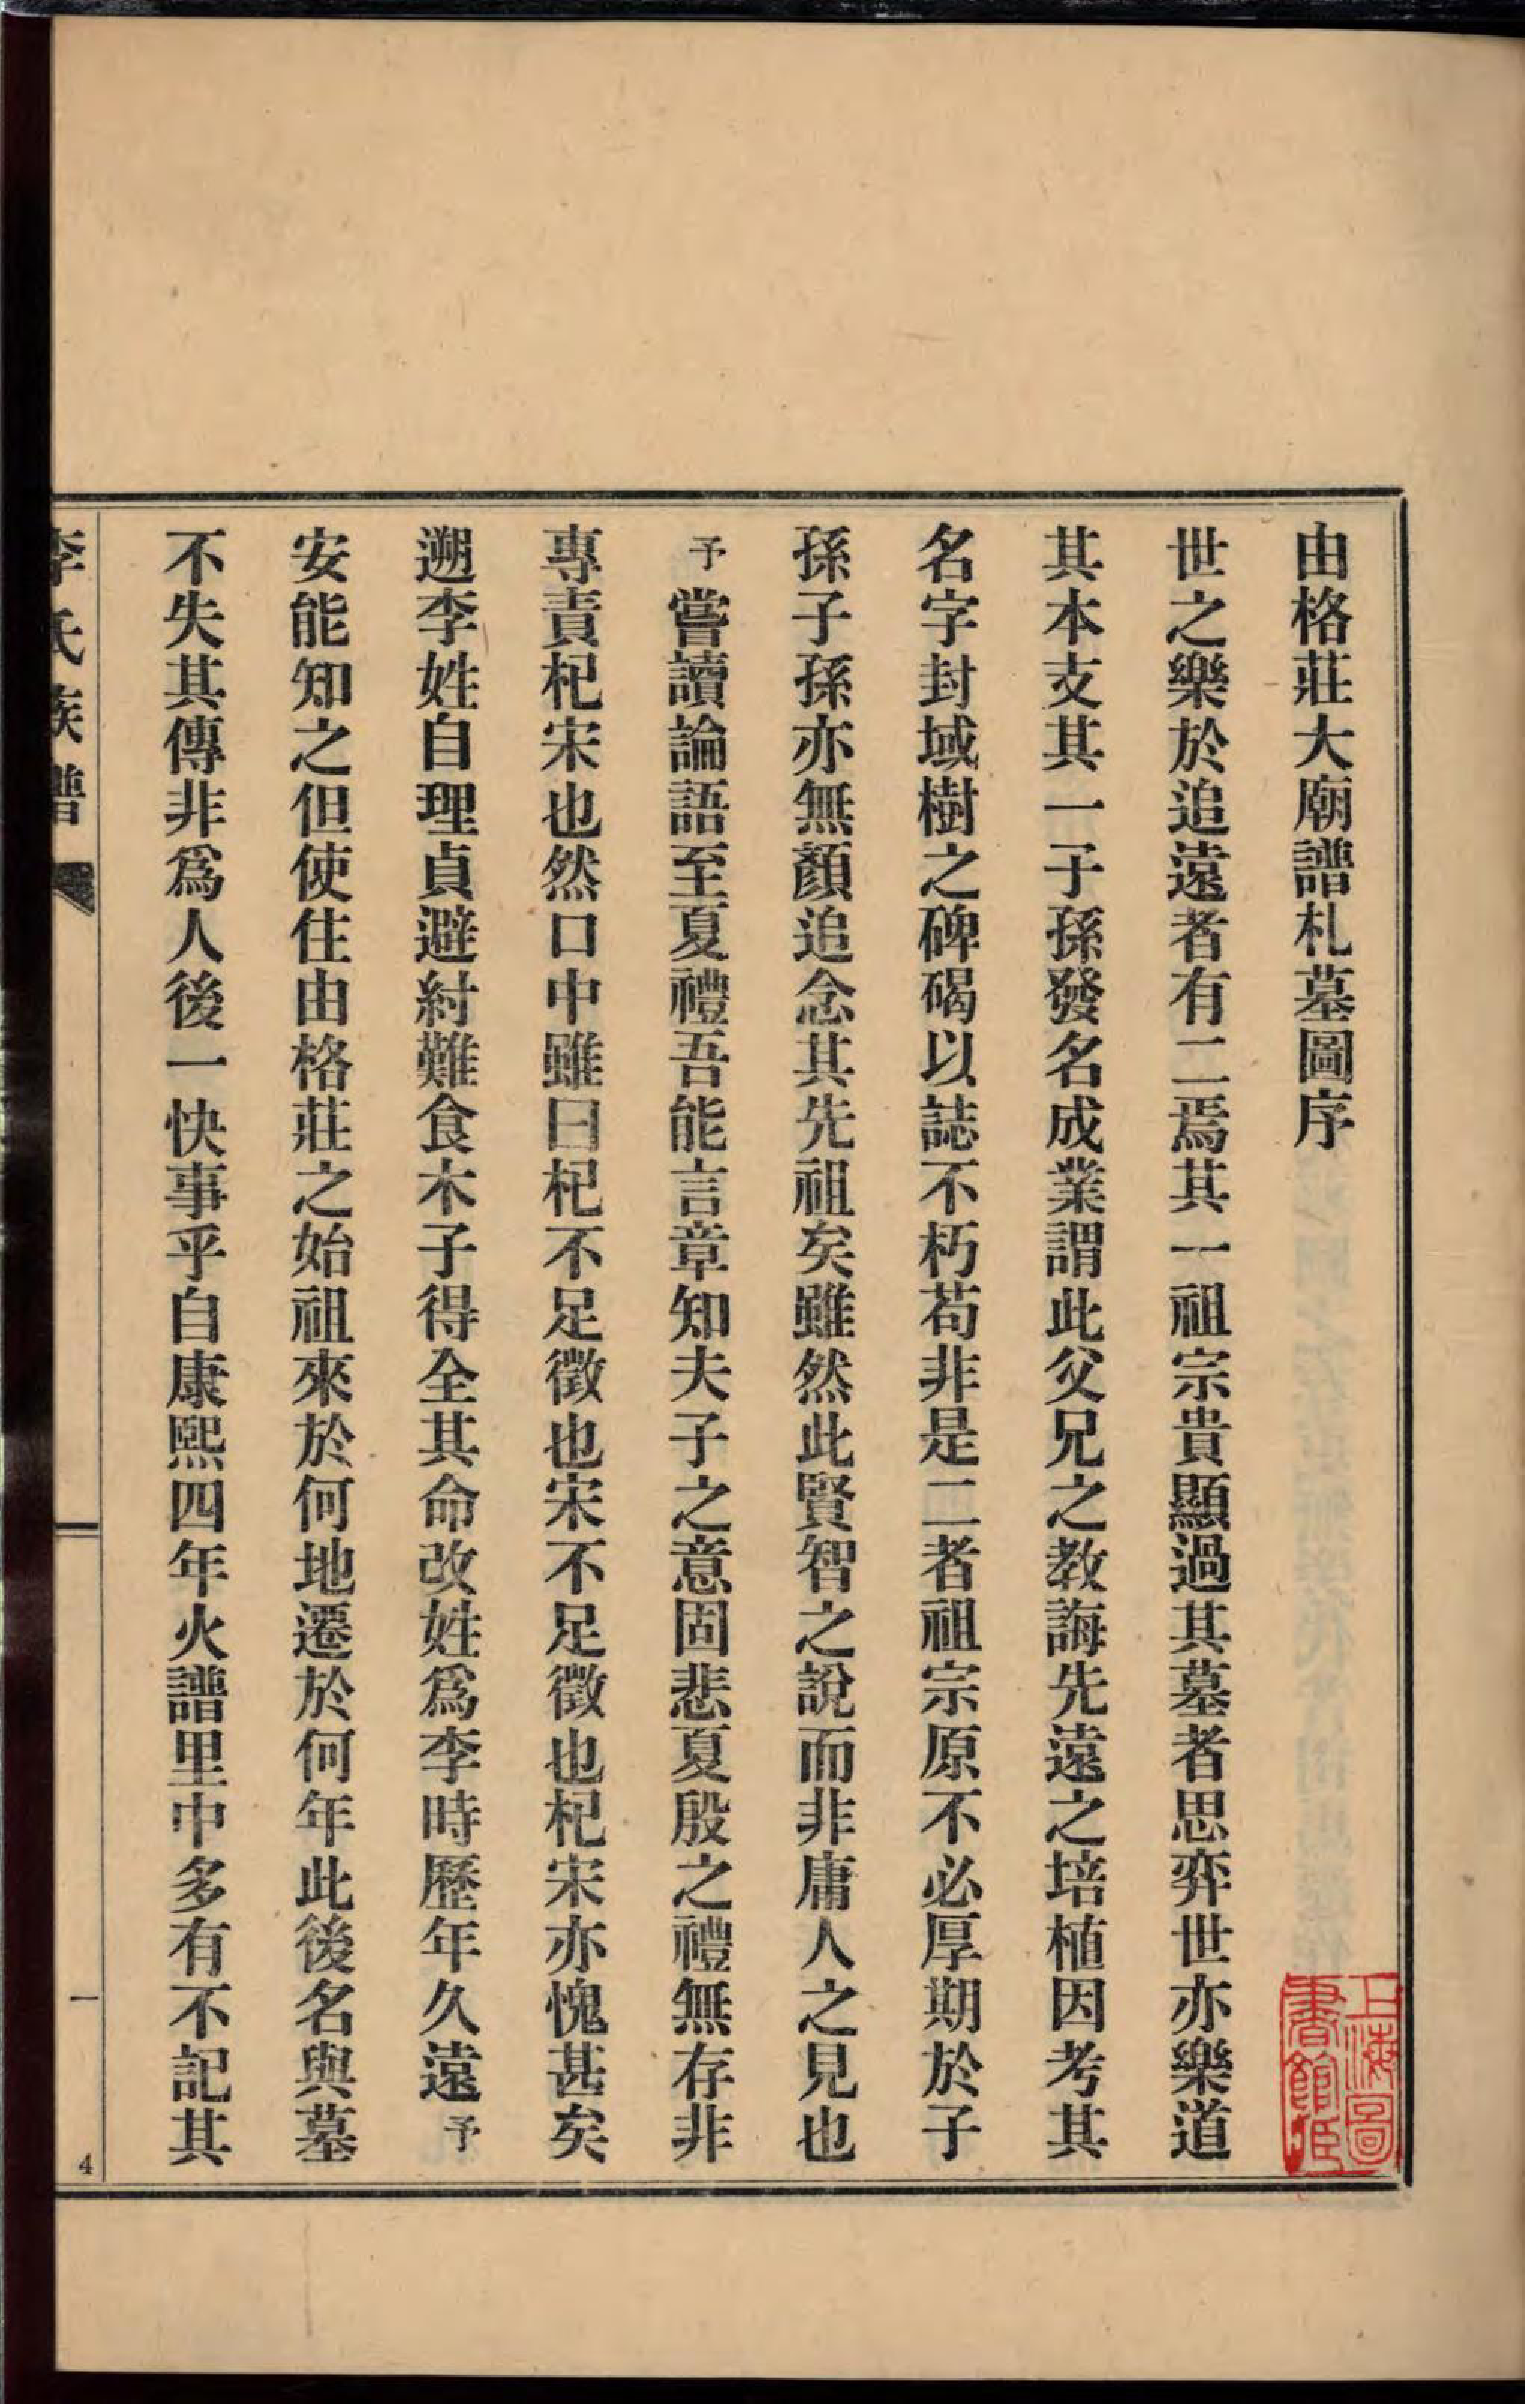 由格莊大廟譜札墓圖序
世之樂於追遠者有二焉其一祖宗貴顯過其墓者思弈世亦樂道
其本支其一子孫發名成業謂此父兄之教誨先遠之培植因考其
名字封域樹之碑碣以誌不朽苟非是二者祖宗原不必厚期於子
孫子孫亦無顏追念其先祖矣雖然此賢智之說而非庸人之見也
予嘗讀論語至夏禮吾能言章知夫子之意固悲夏殷之禮無存非
專責杞宋也然口中雖曰杞不足徵也宋不足徵也杞宋亦愧甚矣
遡李姓自理貞避紂難食木子得全其命改姓爲李時歷年久遠予
安能知之但使住由格莊之始祖來於何地遷於何年此後名與墓
不失其傳非爲人後一快事乎自康熙四年火譜里中多有不記其
李氏族譜
一
4
上海圖書館藏